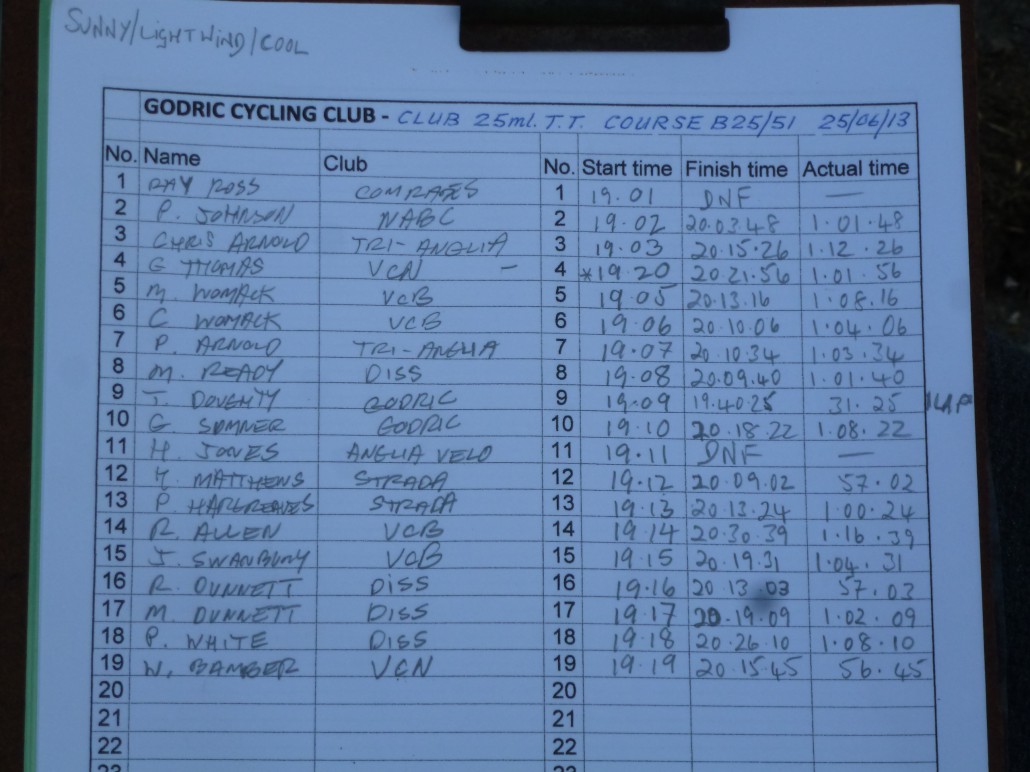 SUNNY/LIGHT WIND/COOL
GODRIC CYCLING CLUB - CLUB 25ml. T.T. COURSE B25/51 25/06/13
No. Name Club No. Start time Finish time Actual time
1 RAY ROSS COMRADES 1 19.01 DNF —
2 P. JOHNSON NABC 2 19.02 20.03.48 1.01.48
3 CHRIS ARNOLD TRI-ANGLIA 3 19.03 20.15.26 1.12.26
4 G THOMAS VCN – 4 *19.20 20.21.56 1.01.56
5 M. WOMACK VCB 5 19.05 20.13.16 1.08.16
6 C WOMACK VCB 6 19.06 20.10.06 1.04.06
7 P. ARNOLD TRI-ANGLIA 7 19.07 20.10.34 1.03.34
8 M. READY DISS 8 19.08 20.09.40 1.01.40
9 J. DOUGHTY GODRIC 9 19.09 19.40.25 31.25 1LAP
10 G. SUMNER GODRIC 10 19.10 20.18.22 1.08.22
11 H. JONES ANGLIA VELO 11 19.11 DNF —
12 MATTHEWS STRADA 12 19.12 20.09.02 57.02
13 P. HARGREAVES STRADA 13 19.13 20.13.24 1.00.24
14 R. ALLEN VCB 14 19.14 20.30.39 1.16.39
15 J. SWANBURY VCB 15 19.15 20.19.31 1.04.31
16 R. DUNNETT DISS 16 19.16 20.13.03 57.03
17 M. DUNNETT DISS 17 19.17 20.19.09 1.02.09
18 P. WHITE DISS 18 19.18 20.26.10 1.08.10
19 W. BAMBER VCN 19 19.19 20.15.45 56.45
20 20
21 21
22 22
23